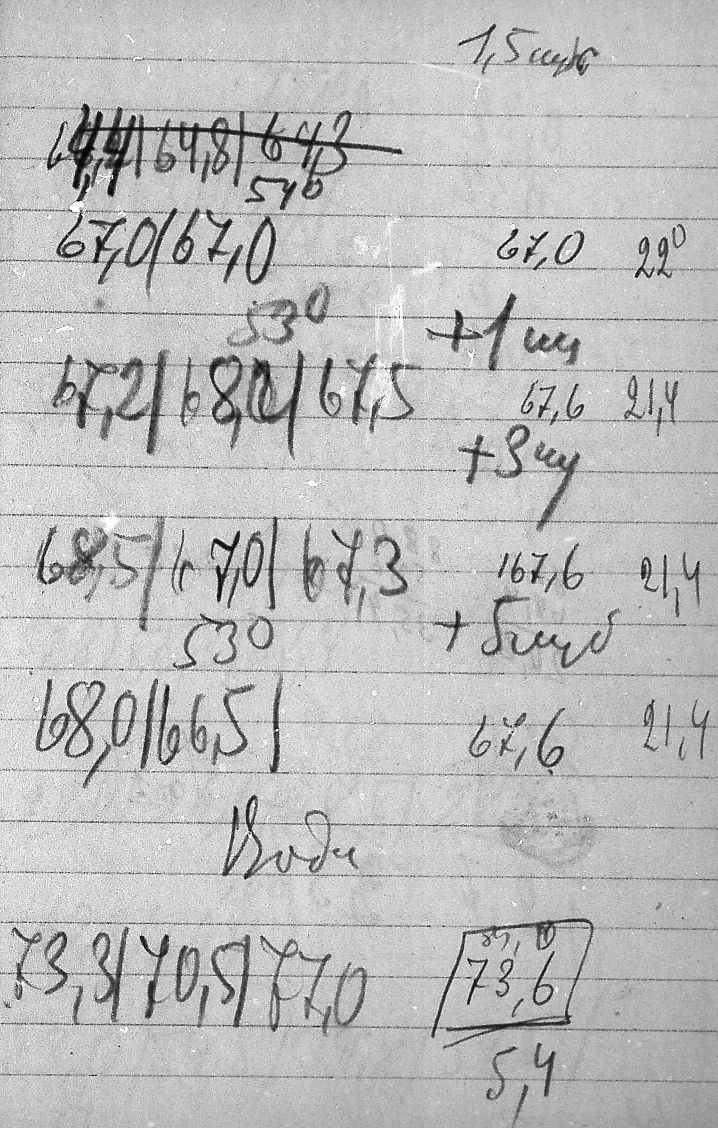 64,4|64,8|64,3
54⁰
67,0|67,0 67,0 22⁰
53⁰
67,2|68,0|67,5 67,6 21,4
68,5|67,0|67,3 167,6 21,4
53⁰
68,0|66,5| 67,6 21,4
Вода
73,3|70,5|77,0 73,6
5,4